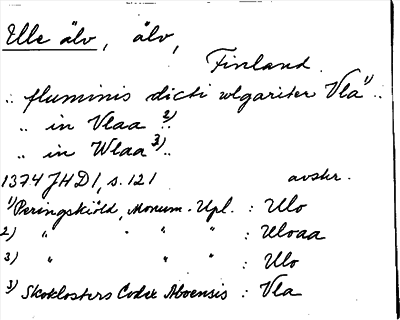 Ule älv, älv,
Finland.
.. fluminis dicti wlgariter Vla 1) ..
.. in Vlaa 2) ..
.. in Wlaa 3) ..
1374 JHD 1, s. 121 avskr.
1) Peringskiöld, Monum. Upl. : Ulo
2) " " " " : Uloaa
3) " " " : Ulo
3) Skoklosters Codex Aboensis : Vla